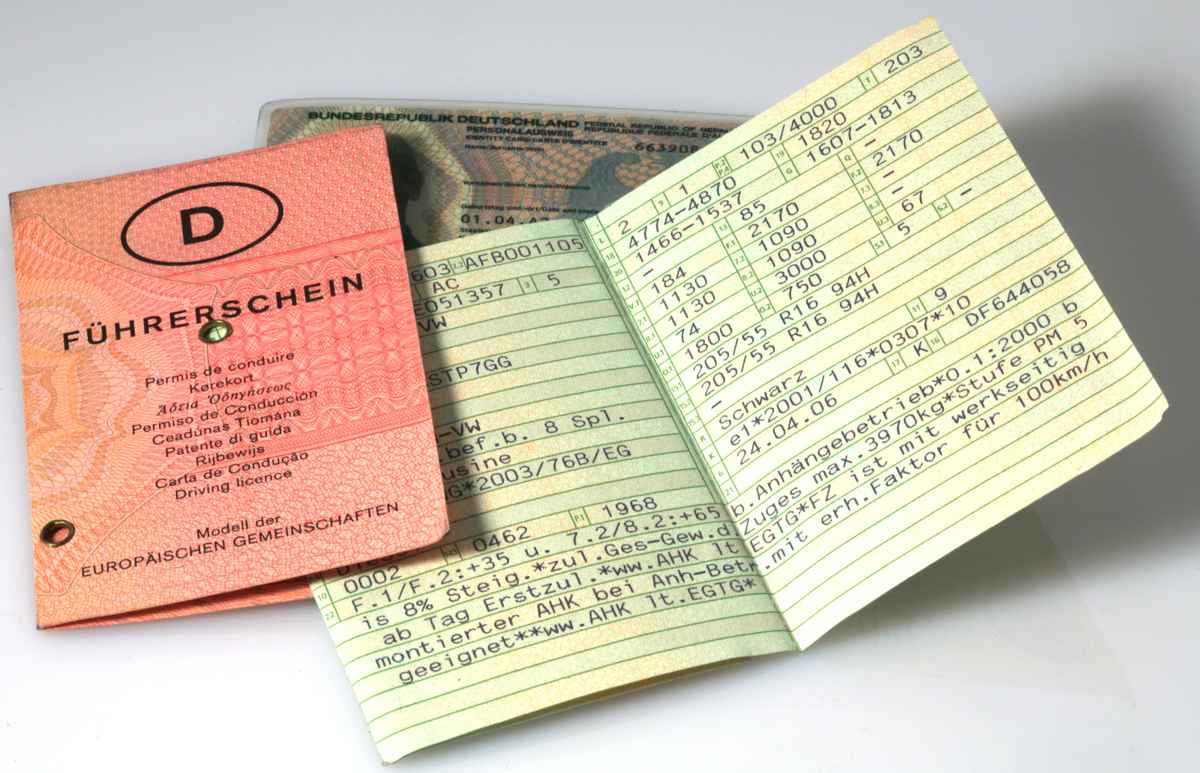 D
FÜHRERSCHEIN
Permis de conduire
Kørekort
Ἄδεια Ὁδηγήσεως
Permiso de Conducción
Ceadúnas Tiomána
Patente di guida
Rijbewijs
Carta de Condução
Driving licence
Modell der
EUROPÄISCHEN GEMEINSCHAFTEN
BUNDESREPUBLIK DEUTSCHLAND FEDERAL REPUBLIC OF
PERSONALAUSWEIS REPUBLIQUE FEDERALE
IDENTITY CARD/CARTE D'IDENTITE
663908
01.04.
603 AFB001105
AC
E051357 5
VW
STP7GG
-VW
bef.b. 8 Spl.
usine
G*2003/76B/EG
1968
0462
0002
F.1/F.2:+35 u. 7.2/8.2:+65
is 8% Steig.*zul.Ges-Gew.d
ab Tag Erstzul.*ww.AHK lt
montierter AHK bei Anh-Betr
geeignet**ww.AHK lt.EGTG*
2 1 103/4000 203
4774-4870 1820
1466-1537 1607-1813
- 85 -
184 2170 2170
1130 1090 -
1130 1090 -
74 3000 67 -
1800 750 5
205/55 R16 94H
205/55 R16 94H
-
Schwarz 9
e1*2001/116*0307*10
24.04.06 K DF644058
b.Anhängebetrieb*0.1:2000 b
Zuges max.3970kg*Stufe PM 5
EGTG*FZ ist mit werkseitig
.mit erh.Faktor für 100km/h